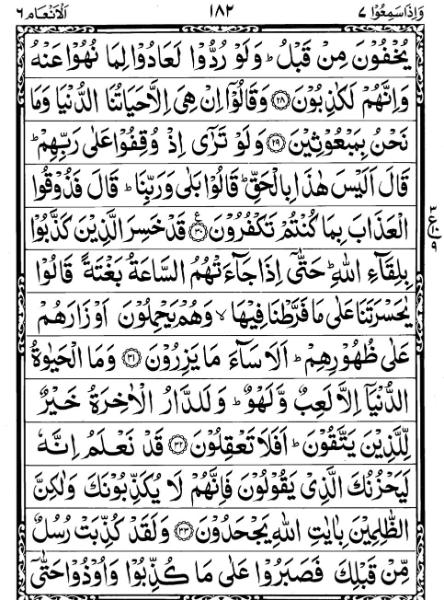 وَاِذَا سَمِعُوْا ٧ ١٨٢ اَلْاَنْعَام ٦
يُخْفُوْنَ مِنْ قَبْلُ ؕ وَلَوْ رُدُّوْا لَعَادُوْا لِمَا نُهُوْا عَنْهُ
وَاِنَّهُمْ لَكٰذِبُوْنَ ﴿٢٨﴾ وَقَالُوْۤا اِنْ هِىَ اِلَّا حَيَاتُنَا الدُّنْيَا وَمَا
نَحْنُ بِمَبْعُوْثِيْنَ ﴿٢٩﴾ وَلَوْ تَرٰۤى اِذْ وُقِفُوْا عَلٰى رَبِّهِمْ ؕ
قَالَ اَلَيْسَ هٰذَا بِالْحَقِّ ؕ قَالُوْا بَلٰى وَرَبِّنَا ؕ قَالَ فَذُوْقُوا
الْعَذَابَ بِمَا كُنْتُمْ تَكْفُرُوْنَ ﴿٣٠﴾ ع قَدْ خَسِرَ الَّذِيْنَ كَذَّبُوْا
بِلِقَآءِ اللّٰهِ ؕ حَتّٰۤى اِذَا جَآءَتْهُمُ السَّاعَةُ بَغْتَةً قَالُوْا
يٰحَسْرَتَنَا عَلٰى مَا فَرَّطْنَا فِيْهَا ۙ وَهُمْ يَحْمِلُوْنَ اَوْزَارَهُمْ
عَلٰى ظُهُوْرِهِمْ ؕ اَلَا سَآءَ مَا يَزِرُوْنَ ﴿٣١﴾ وَمَا الْحَيٰوةُ
الدُّنْيَاۤ اِلَّا لَعِبٌ وَّلَهْوٌ ؕ وَلَلدَّارُ الْاٰخِرَةُ خَيْرٌ
لِّلَّذِيْنَ يَتَّقُوْنَ ؕ اَفَلَا تَعْقِلُوْنَ ﴿٣٢﴾ قَدْ نَعْلَمُ اِنَّهٗ
لَيَحْزُنُكَ الَّذِىْ يَقُوْلُوْنَ فَاِنَّهُمْ لَا يُكَذِّبُوْنَكَ وَلٰكِنَّ
الظّٰلِمِيْنَ بِاٰيٰتِ اللّٰهِ يَجْحَدُوْنَ ﴿٣٣﴾ وَلَقَدْ كُذِّبَتْ رُسُلٌ
مِّنْ قَبْلِكَ فَصَبَرُوْا عَلٰى مَا كُذِّبُوْا وَاُوْذُوْا حَتّٰۤى